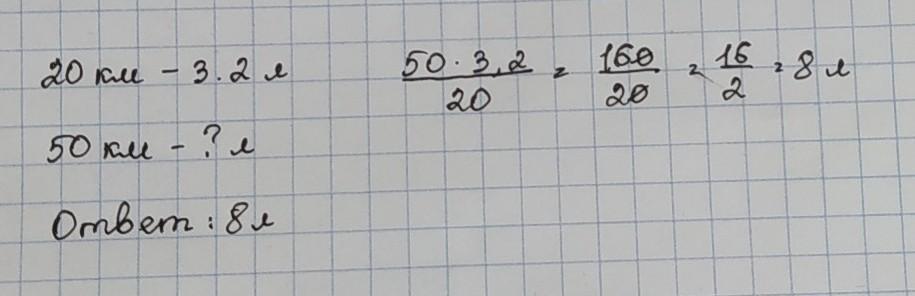 20 км – 3.2 л
50 · 3,2 / 20 = 160 / 20 = 16 / 2 = 8 л
50 км – ? л
Ответ: 8 л